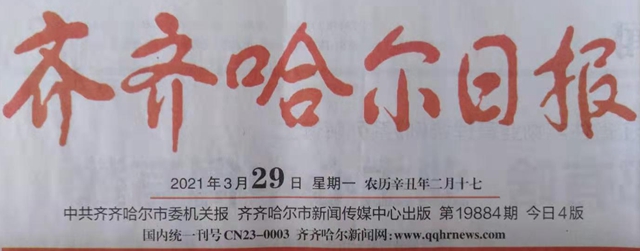 齐齐哈尔日报
2021年3月29日 星期一 农历辛丑年二月十七
中共齐齐哈尔市委机关报 齐齐哈尔市新闻传媒中心出版 第19884期 今日4版
国内统一刊号CN23-0003 齐齐哈尔新闻网:www.qqhrnews.com